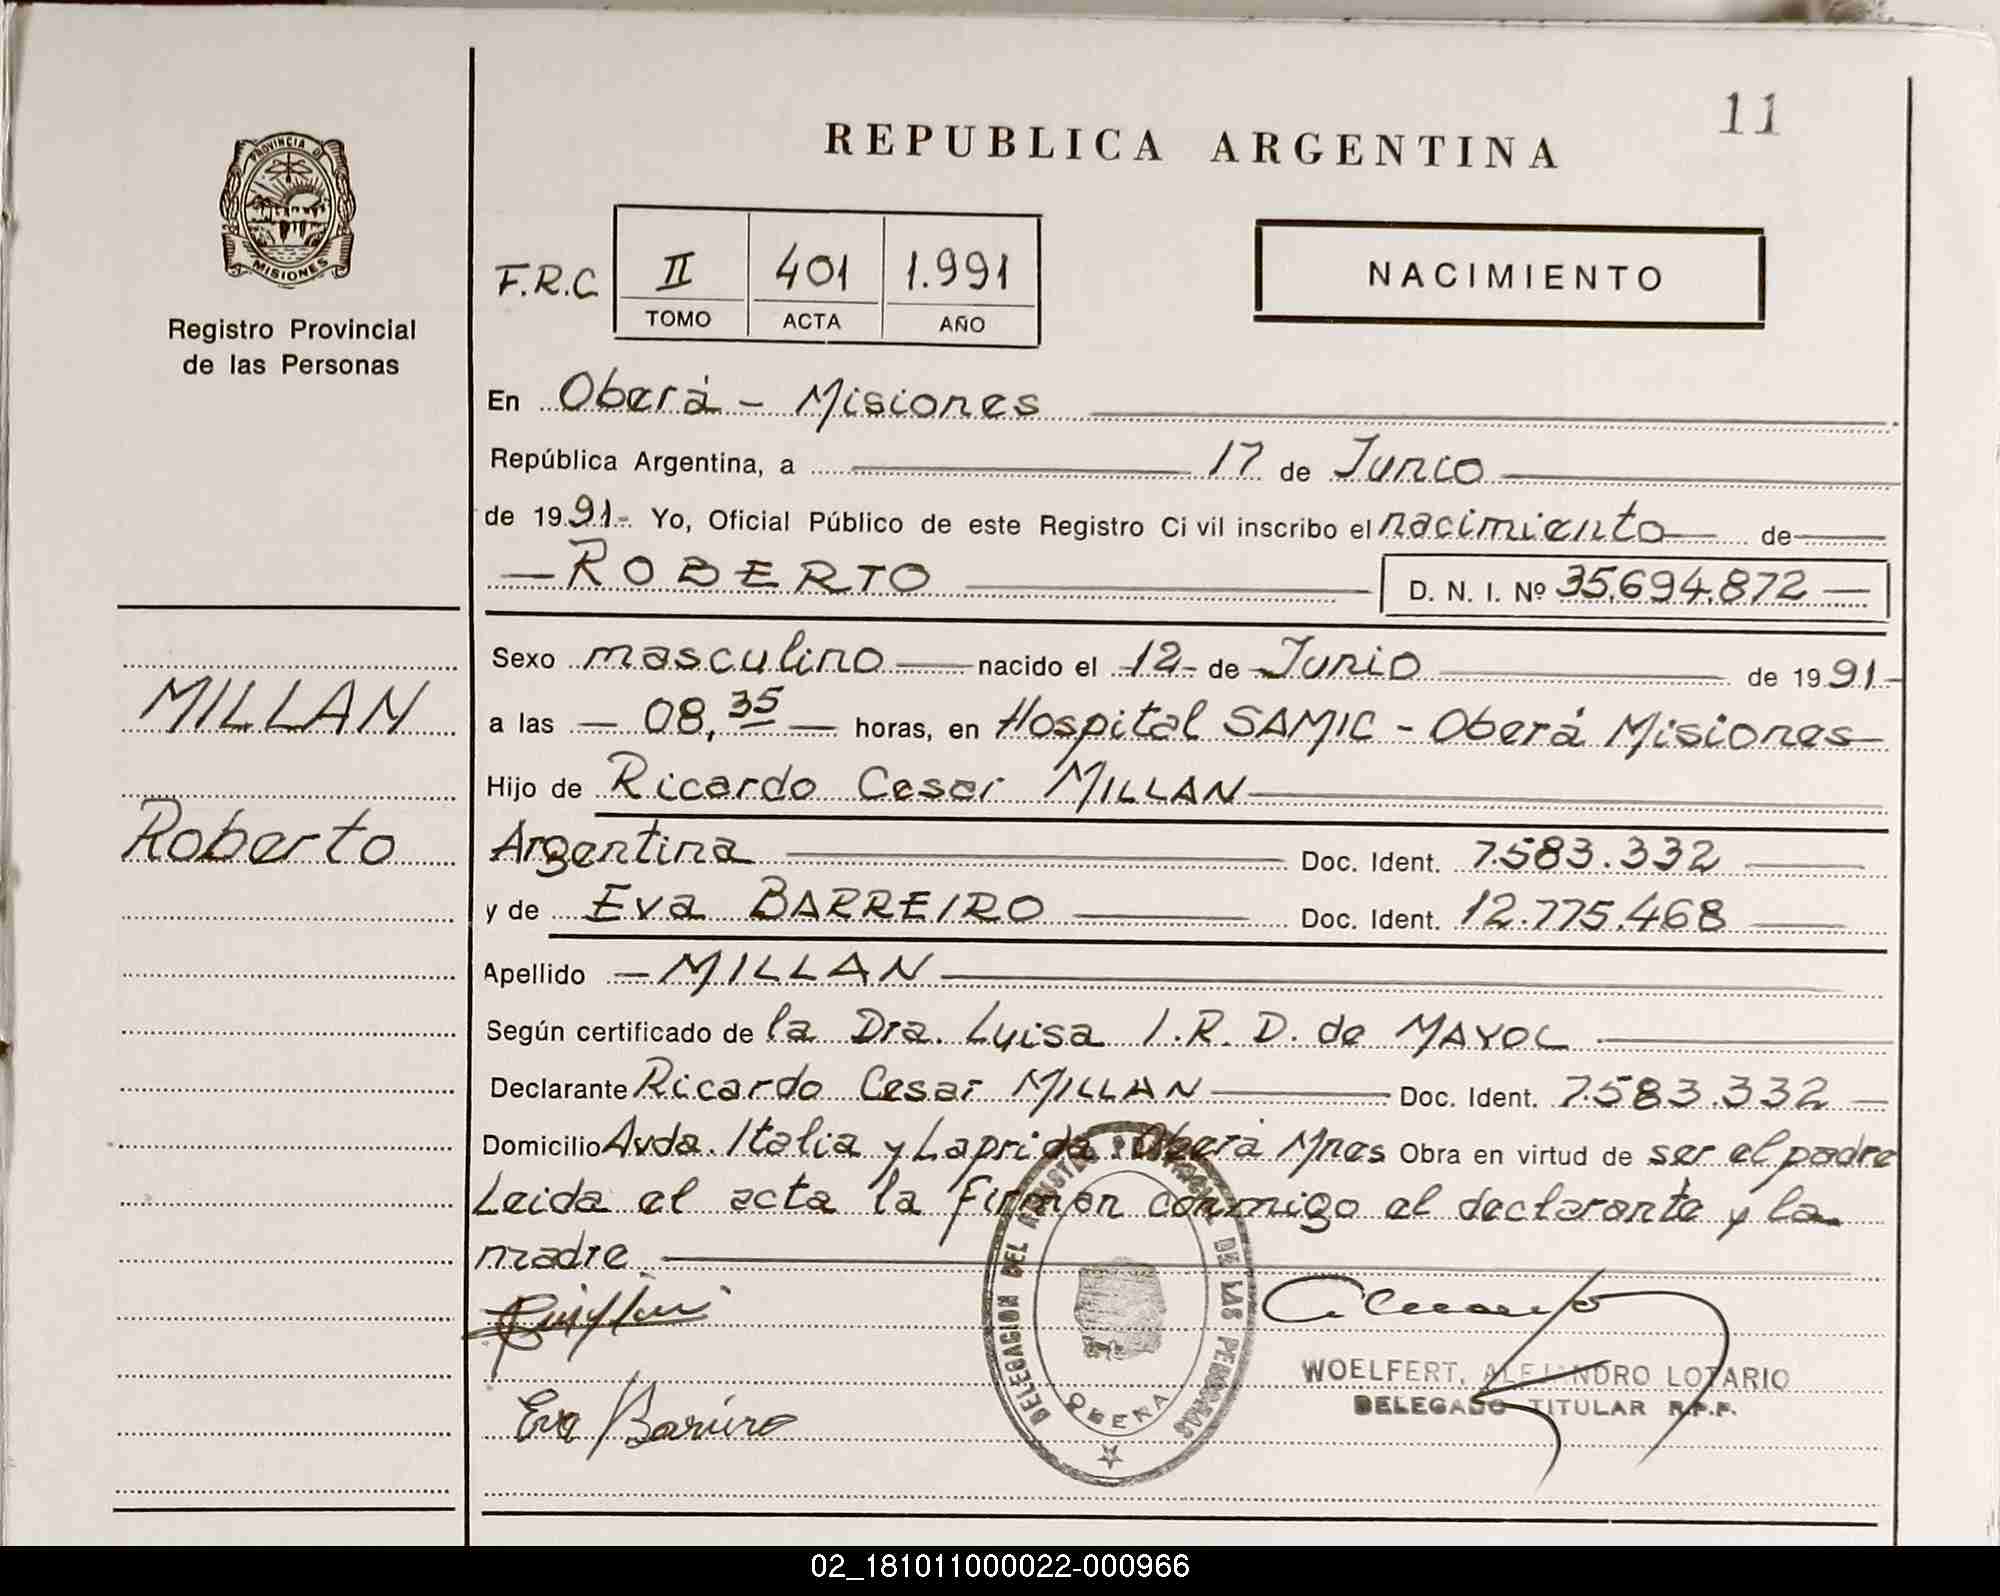 11
REPUBLICA ARGENTINA
PROVINCIA DE
MISIONES
Registro Provincial
de las Personas
F.R.C. II 401 1.991
TOMO ACTA AÑO
NACIMIENTO
En Oberá - Misiones
República Argentina, a 17 de Junio
de 1991- Yo, Oficial Público de este Registro Ci vil inscribo el nacimiento de
ROBERTO D. N. I. Nº 35.694.872
Sexo masculino nacido el 12- de Junio de 1991-
MILLAN
a las 08,35 horas, en Hospital SAMIC - Oberá Misiones
Hijo de Ricardo Cesar MILLAN
Roberto
Argentina Doc. Ident. 7.583.332
y de Eva BARREIRO Doc. Ident. 12.775.468
Apellido MILLAN
Según certificado de la Dra. Luisa I.R.D. de MAYOL
Declarante Ricardo Cesar MILLAN Doc. Ident. 7.583.332
Domicilio Avda. Italia y Laprida Oberá Mnes Obra en virtud de ser el padre
Leida el acta la firman conmigo el declarante y la
madre
Eva Barreiro
DELEGACION DEL REGISTRO PROVINCIAL DE LAS PERSONAS
OBERA
WOELFERT, ALEJANDRO LOTARIO
DELEGADO TITULAR R.P.P.
02_181011000022-000966